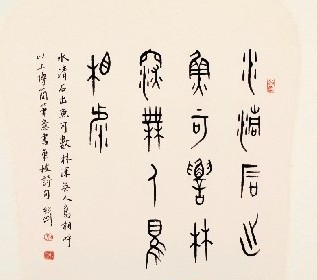 水清石出
魚可數林
深無人鳥
相虖
水清石出魚可數林深無人鳥相呼
以上博簡筆意書東坡詩句